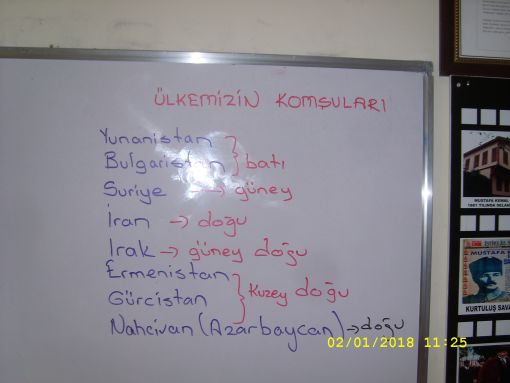 ÜLKEMİZİN KOMŞULARI
Yunanistan
Bulgaristan } batı
Suriye → güney
İran → doğu
Irak → güney doğu
Ermenistan
Gürcistan } Kuzey doğu
Nahcivan (Azarbaycan) → doğu
02/01/2018 11:25
MUSTAFA KEMAL
1881 YILINDA SELAN
MUSTAFA
KURTULUŞ SAVA